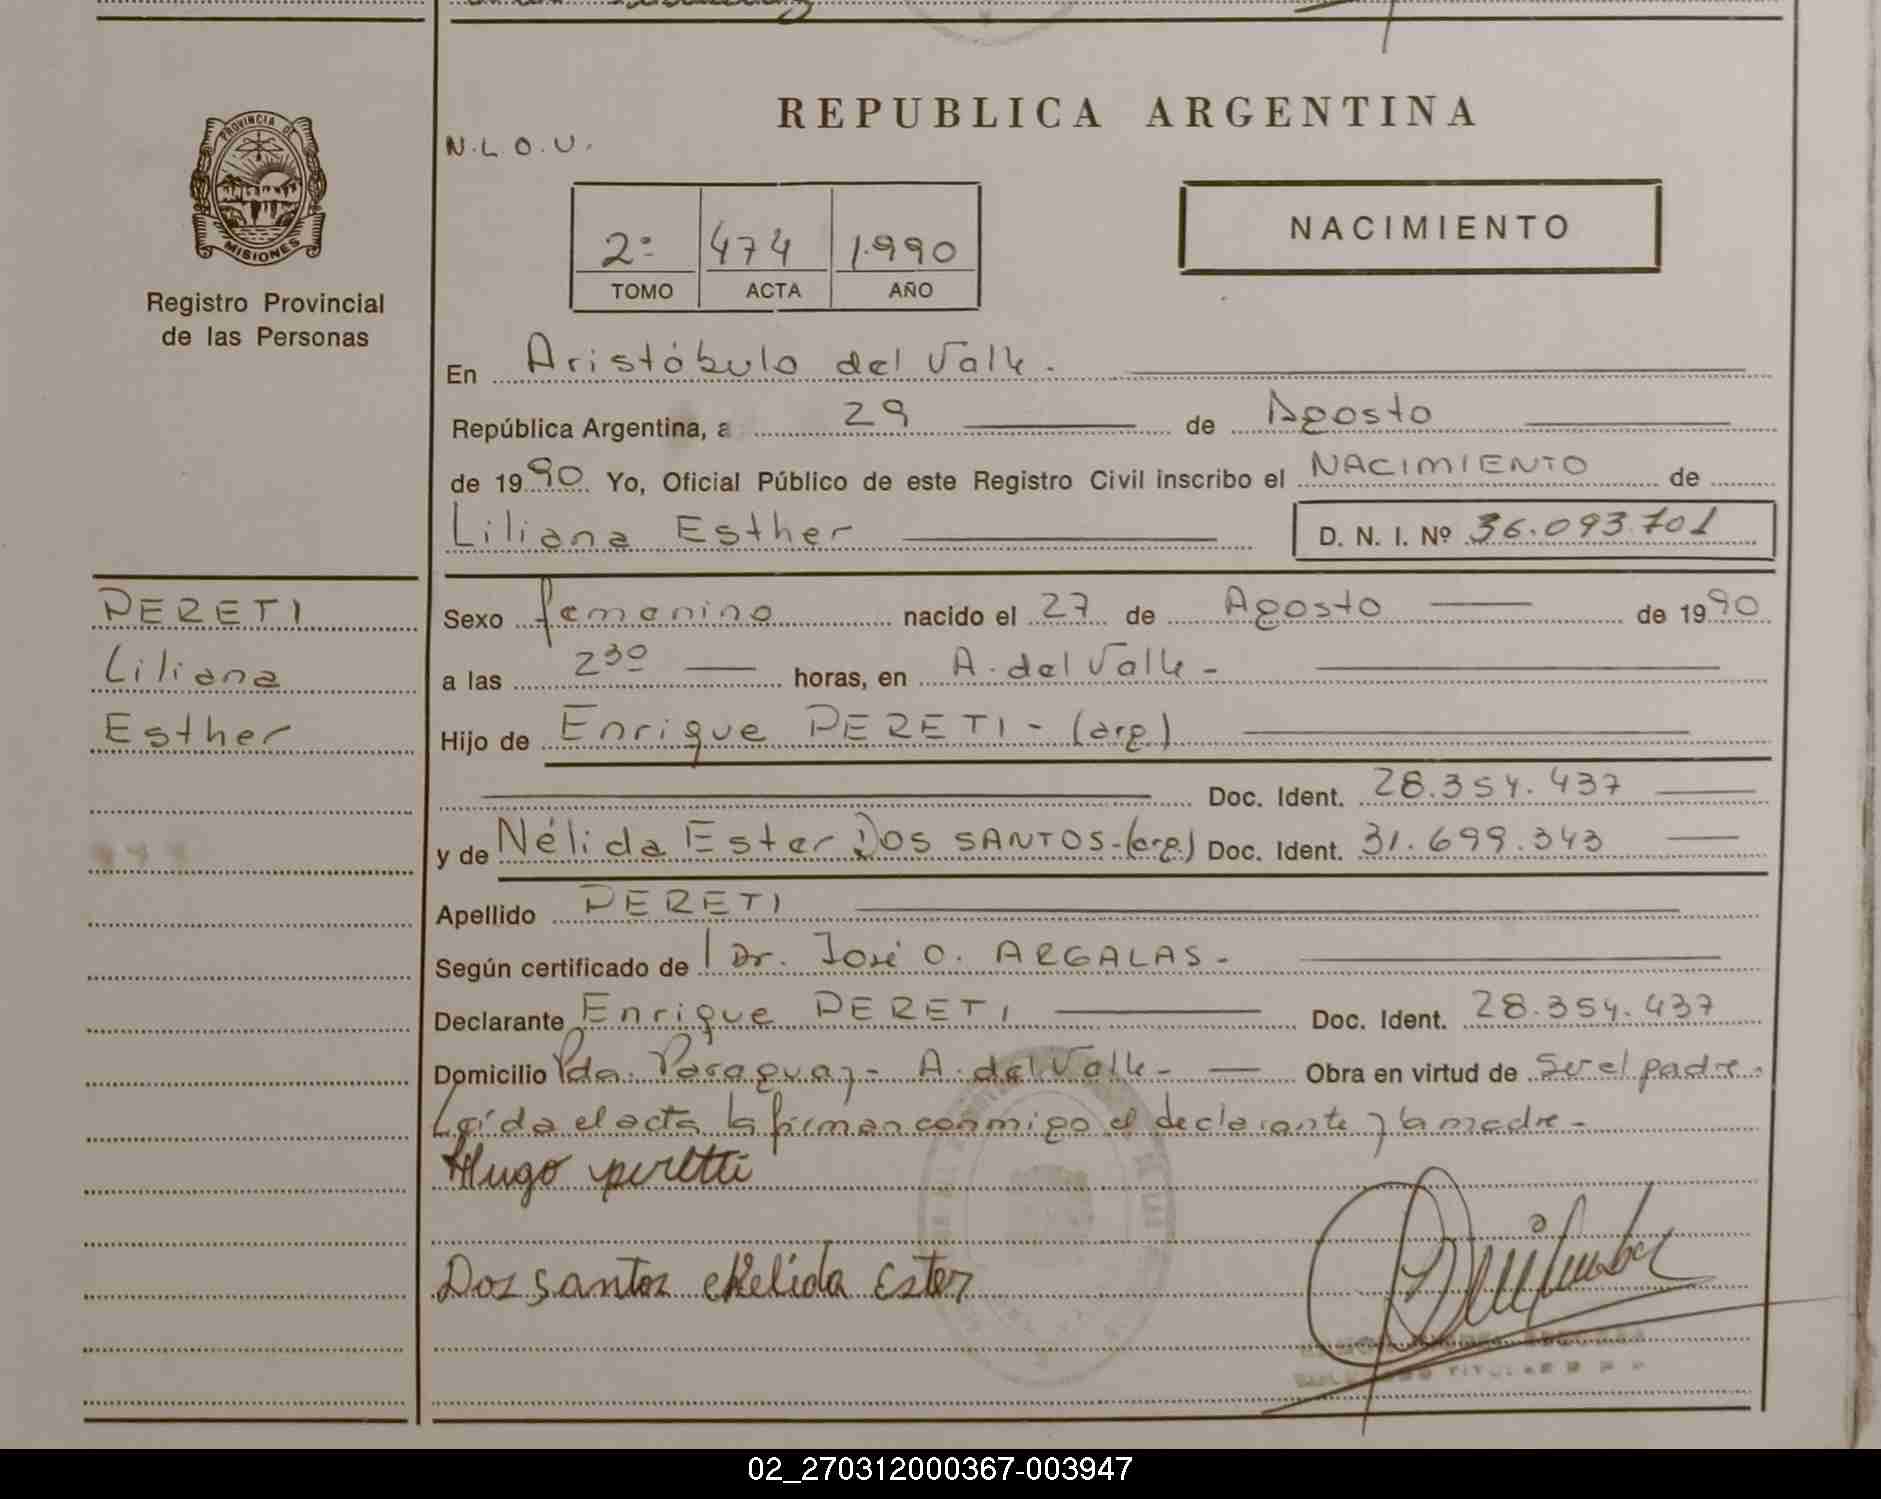 REPUBLICA ARGENTINA
N.L.O.U.
PROVINCIA DE
MISIONES
Registro Provincial
de las Personas
2º 474 1.990
TOMO ACTA AÑO
NACIMIENTO
En Aristóbulo del Valle.
República Argentina, a 29 de Agosto
de 1990 Yo, Oficial Público de este Registro Civil inscribo el NACIMIENTO de
Liliana Esther D. N. I. Nº 36.093.701
PERETI
Liliana
Esther
Sexo femenino nacido el 27 de Agosto de 1990
a las 2³⁰ horas, en A. del Valle -
Hijo de Enrique PERETI - (arg.)
Doc. Ident. 28.354.437
y de Nélida Ester DOS SANTOS - (arg.) Doc. Ident. 31.699.343
Apellido PERETI
Según certificado de l Dr. José O. ARGALAS -
Declarante Enrique PERETI Doc. Ident. 28.354.437
Domicilio Pda. Paraguay - A. del Valle - Obra en virtud de Ser el padre.
Leída el acta la firman conmigo el declarante y la madre -
Hugo peretti
Dos santos Nelida Ester
02_270312000367-003947